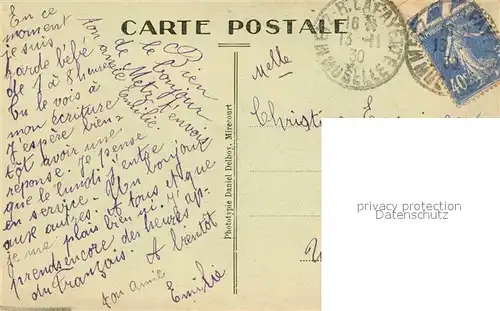 CARTE POSTALE
En ce
moment
je suis
garde bébé
de 1 à 8h
Tu le vois à
mon écriture
J'espère bien-
tôt avoir une
réponse. Je pense
que le lundi j'entre
en service. Mon bonjour
aux autres. A tous et que
je me plais bien ici. J'ap-
prends encore des heures
du Français. A bientôt
ton amie
Emilie
Bien
le bonjour
de Metz t'envoi
ton amie
Emilie.
Phototypie Daniel Delboy, Mirecourt
R. LAFAYETTE
16
13 - 11
30
MOSELLE
40c
Melle
Christine
privacy protection
Datenschutz